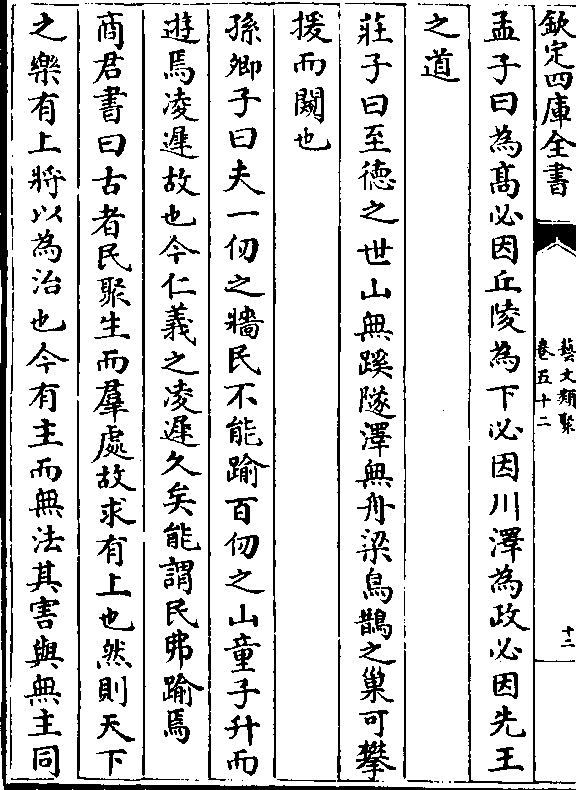 欽定四庫全書
藝文類聚
卷五十二
十二
孟子曰為髙必因丘陵為下必因川澤為政必因先王
之道
莊子曰至德之世山無蹊隧澤無舟梁鳥鵲之巢可攀
援而闚也
孫卿子曰夫一仞之牆民不能踰百仞之山童子升而
遊焉凌遲故也今仁義之凌遲久矣能謂民弗踰焉
商君書曰古者民聚生而羣處故求有上也然則天下
之樂有上將以為治也今有主而無法其害與無主同